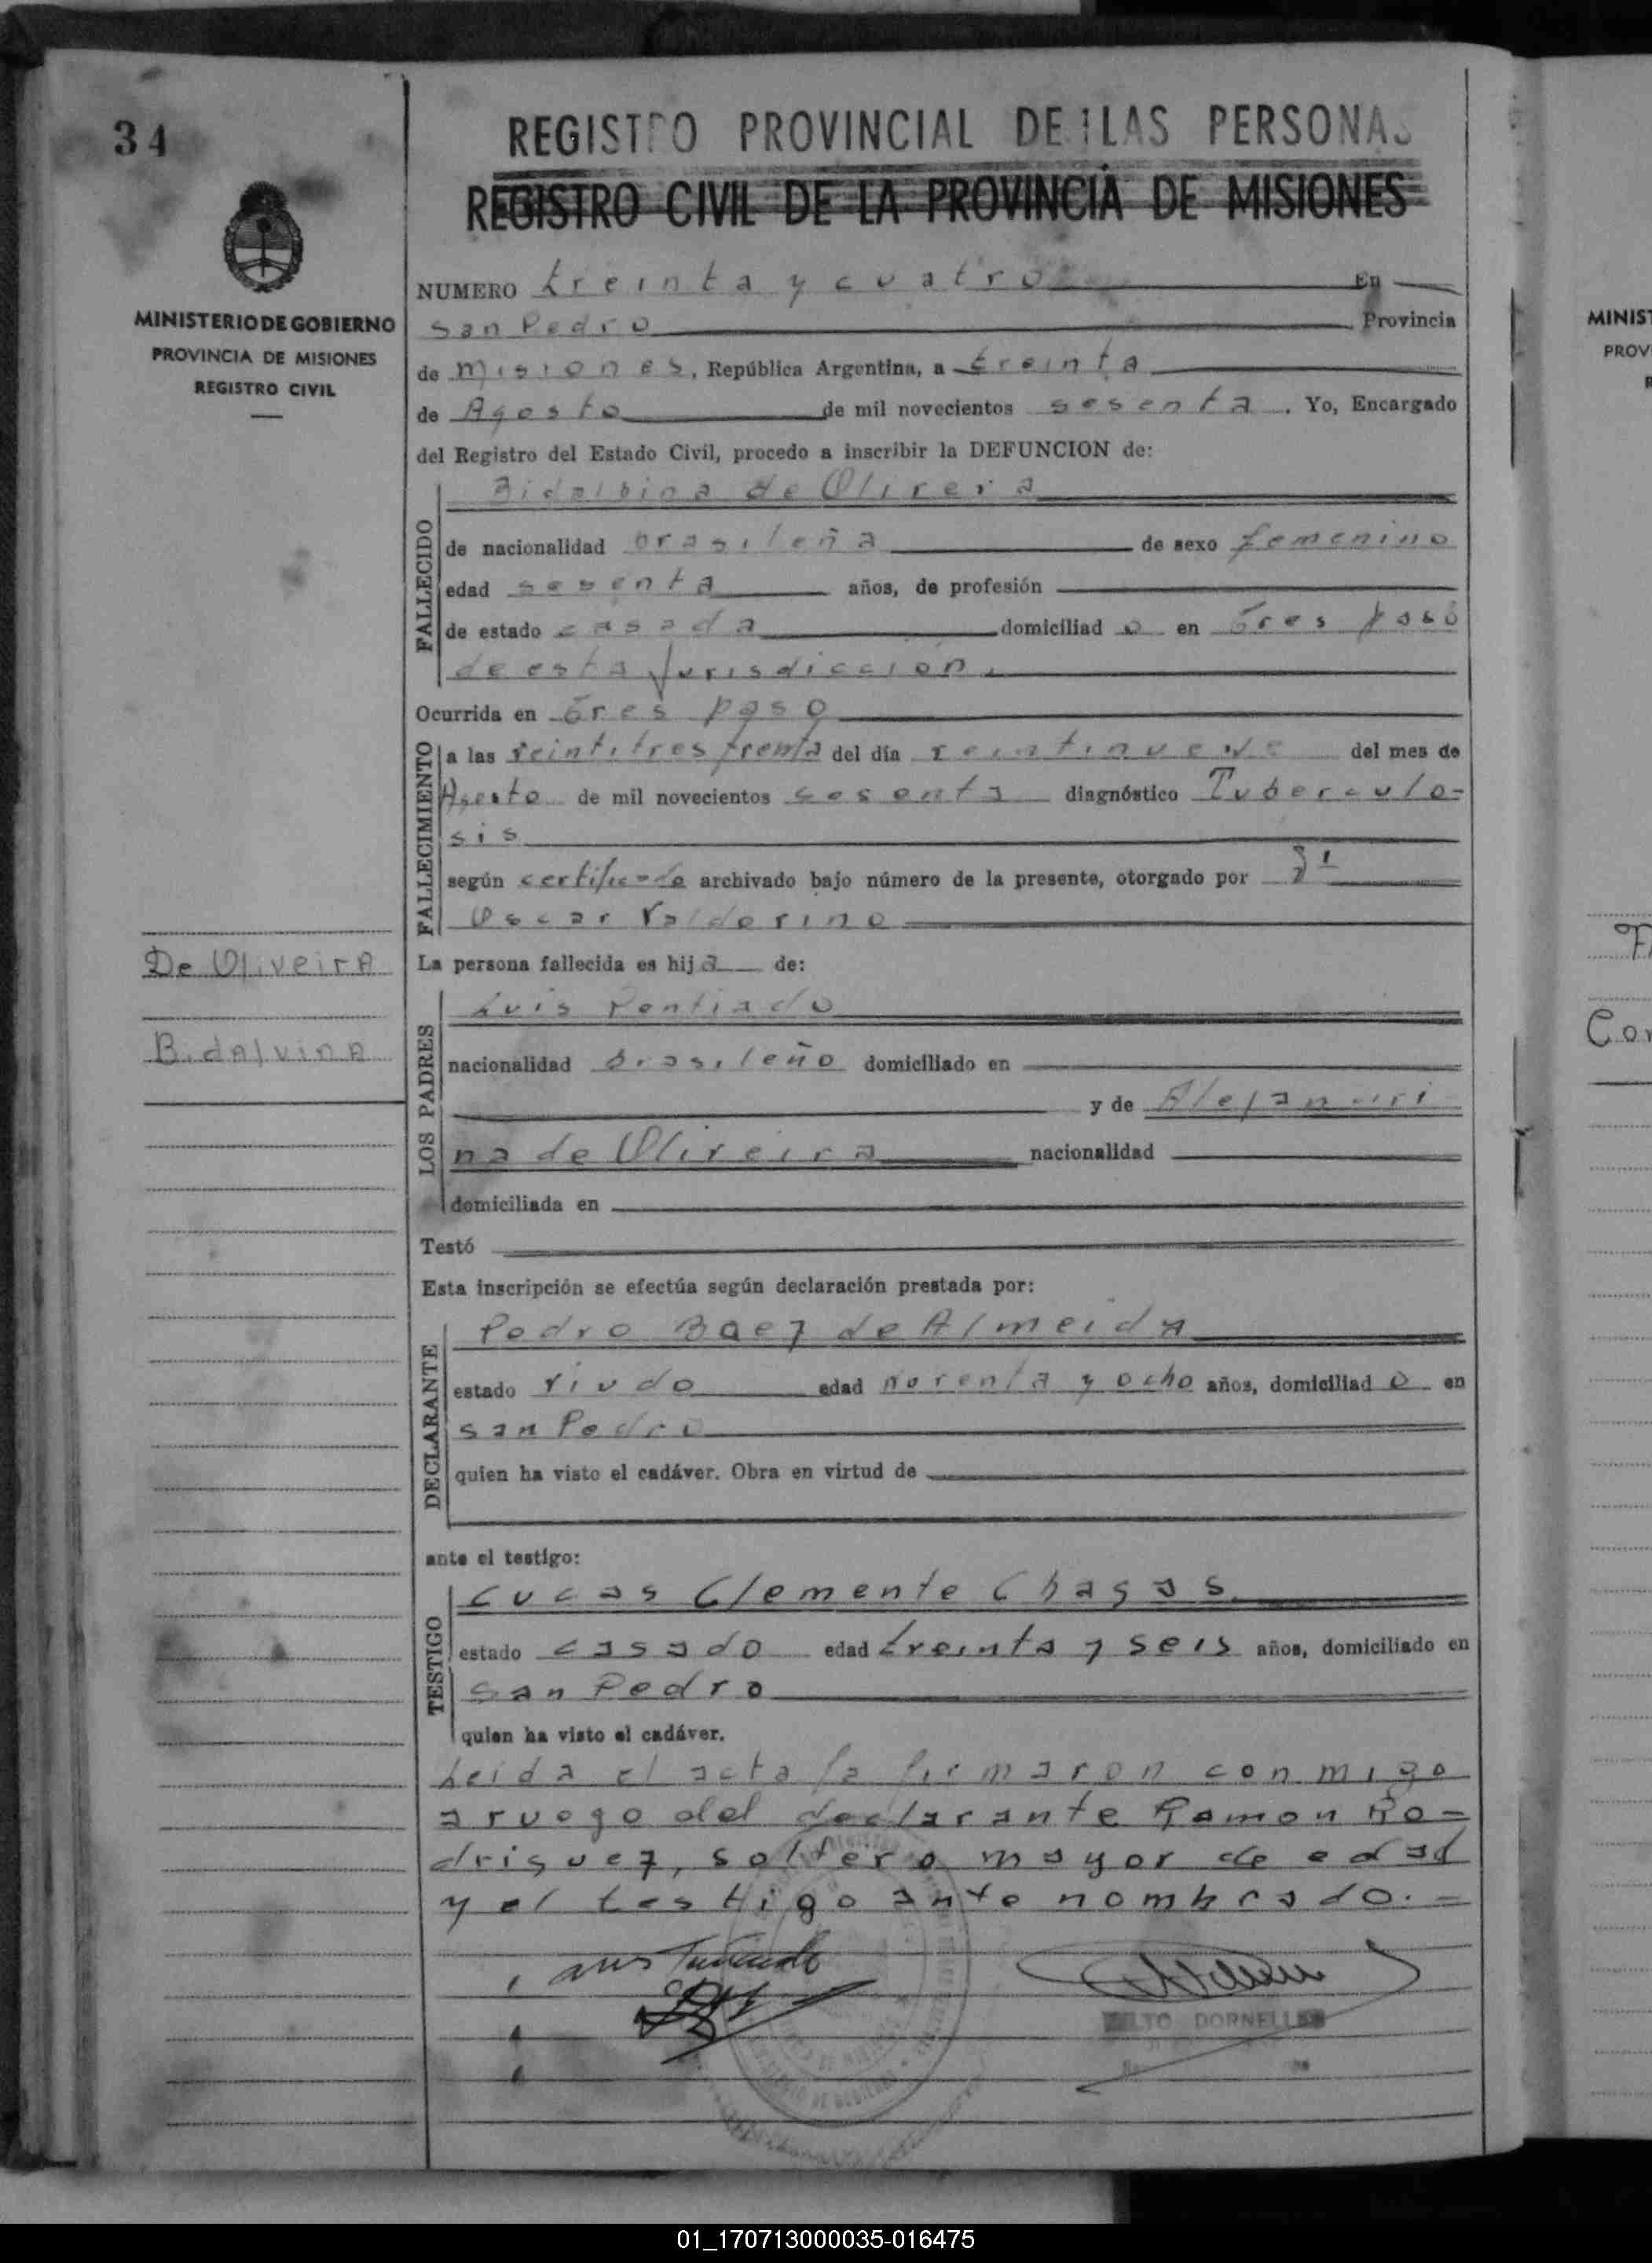 34
REGISTRO PROVINCIAL DE LAS PERSONAS
REGISTRO CIVIL DE LA PROVINCIA DE MISIONES
MINISTERIO DE GOBIERNO
PROVINCIA DE MISIONES
REGISTRO CIVIL
NUMERO treinta y cuatro En
San Pedro Provincia
de misiones, República Argentina, a treinta
de Agosto de mil novecientos sesenta. Yo, Encargado
del Registro del Estado Civil, procedo a inscribir la DEFUNCION de:
FALLECIDO
Bidalbina de Olivera
de nacionalidad brasileña de sexo femenino
edad sesenta años, de profesión
de estado casada domiciliad o en tres paso
de esta Jurisdiccion.
Ocurrida en tres paso
FALLECIMIENTO
a las veintitres treinta del día veintinueve del mes de
Agosto de mil novecientos sesenta diagnóstico Tuberculo-
sis
según certificado archivado bajo número de la presente, otorgado por
Oscar Valderino
De Oliveira
Bidalvina
La persona fallecida es hij a de:
LOS PADRES
Luis Pentiado
nacionalidad brasileño domiciliado en
y de Alejandri
na de Oliveira nacionalidad
domiciliada en
Testó
Esta inscripción se efectúa según declaración prestada por:
DECLARANTE
Pedro Baez de Almeida
estado viudo edad noventa y ocho años, domiciliad o en
San Pedro
quien ha visto el cadáver. Obra en virtud de
ante el testigo:
TESTIGO
Lucas Clemente Chagas
estado casado edad treinta y seis años, domiciliado en
San Pedro
quien ha visto el cadáver.
Leida el acta la firmaron conmigo
a ruego del declarante Ramon Ro-
driguez, soltero mayor de edad
y el testigo ante nombrado.-
DORNELLES
MINIST
PROV
Co
01_170713000035-016475